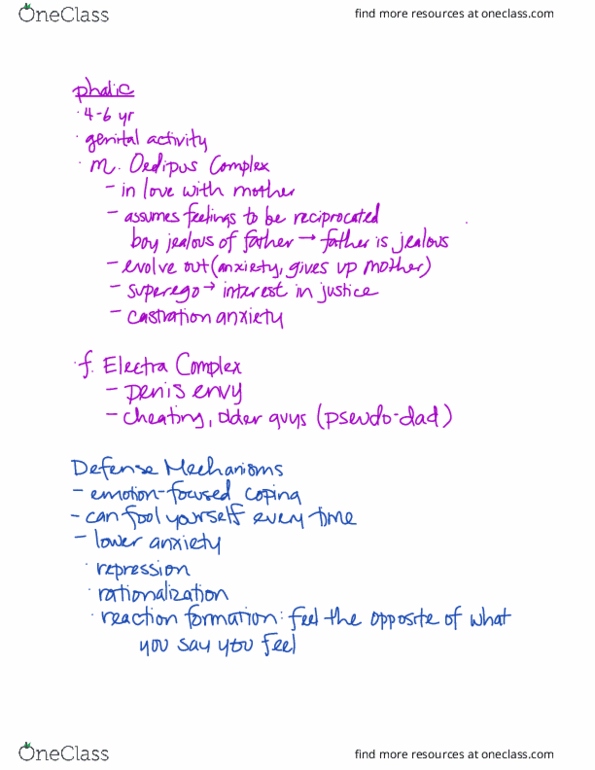 OneClass
find more resources at oneclass.com
phalic
· 4-6 yr
· genital activity
· m. Oedipus Complex
- in love with mother
- assumes feelings to be reciprocated
boy jealous of father → father is jealous
- evolve out (anxiety, gives up mother)
- superego → interest in justice
- castration anxiety
· f. Electra Complex
- penis envy
- cheating, older guys (pseudo-dad)
Defense Mechanisms
- emotion-focused coping
- can fool yourself every time
- lower anxiety
· repression
· rationalization
· reaction formation: feel the opposite of what
you say you feel
OneClass
find more resources at oneclass.com